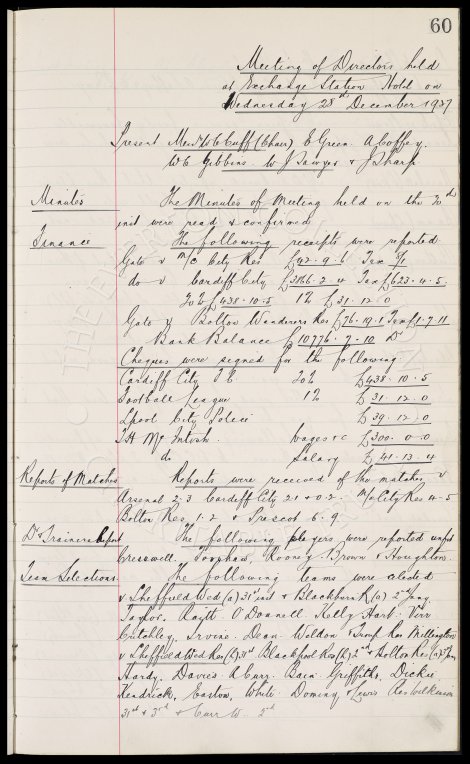 60
Meeting of Directors held
at Exchange Station Hotel on
Wednesday 28th December 1927
Present Messrs W C Cuff (Chair) E Green A Coffey
W C Gibbins W J Sawyer & J Sharp
Minutes The Minutes of Meeting held on the 20th
inst were read & confirmed
Finance The following receipts were reported
Gate v M/c City Res £42.9.6 Tax
do v Cardiff City £2866.2.4 Tax £623.4.5
20% £438.10.5 1% £31.12.0
Gate v Bolton Wanderers Res £76.19.1 Tax £1.7.11
Bank Balance £10776.7.10 Dr
Cheques were signed for the following
Cardiff City F C 20% £438.10.5
Football League 1% £31.12.0
Lpool City Police £39.12.0
T H McIntosh wages &c £300.0.0
do Salary £41.13.4
Reports of Matches Reports were received of the matches v
Arsenal 2-3 Cardiff City 2-1 & 0-2. M/c City Res 4-5
Bolton Res 1-2 & Prescot 6-9
Dr & Trainers Report The following players were reported unfit
Cresswell. Rooney Brown & Houghton
Team Selections The following teams were selected
v Sheffield Wed (a) 31st inst & Blackburn R (a) 2nd Jany
Taylor. Raitt O'Donnell Kelly Hart. Virr
Critchley. Irvine. Dean. Weldon & Troup Res Millington
v Sheffield Wed Res (h) 31st Blackpool Res (h) 2nd & Bolton Res (a)
Hardy. Davies Curr. Bain Griffiths, Dickie
Kendrick, Easton, White. Dominy, & Lewis Res Wilkinson
31st & 3rd & Curr W. 2nd